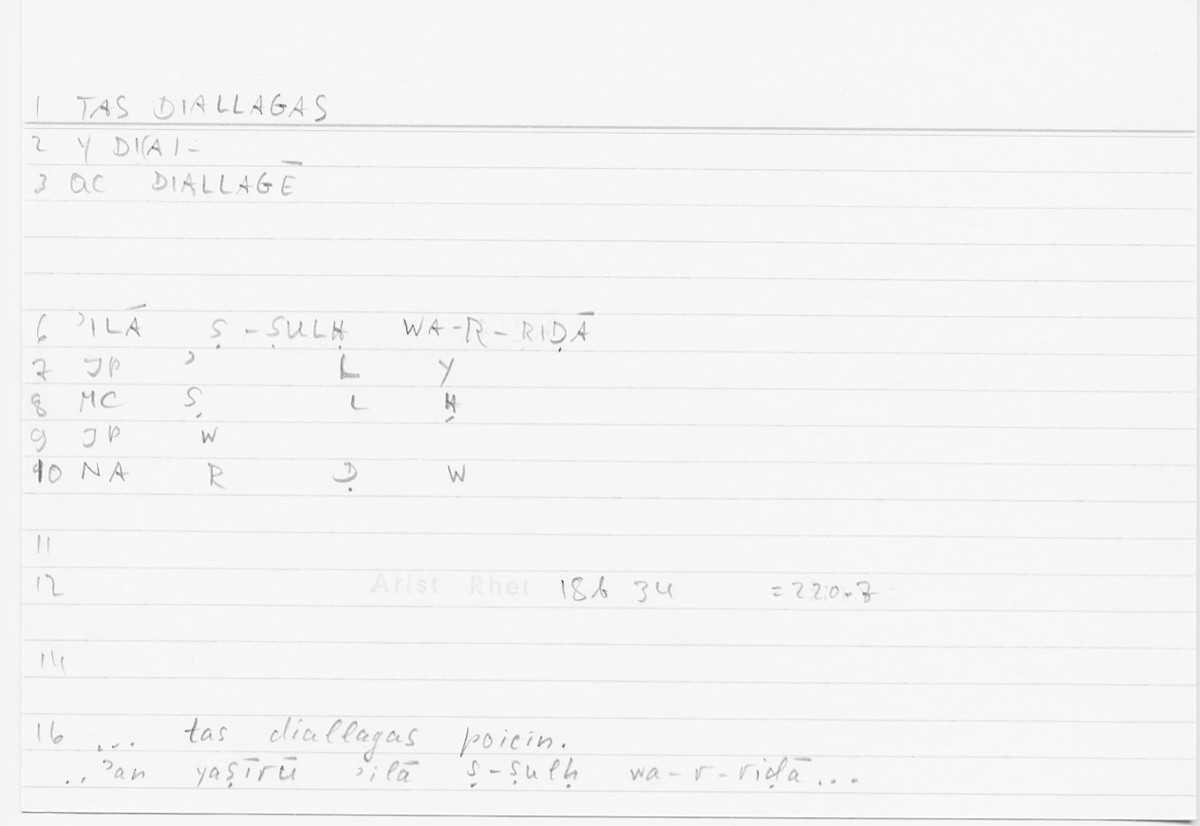 1 TAS DIALLAGAS
2 Y DI(AI-
3 QC DIALLAGĒ
6 ʾILĀ Ṣ-ṢULḤ WA-R-RIḌĀ
7 JP ʾ L Y
8 MC Ṣ L Ḥ
9 JP W
10 NA R Ḍ W
11
12 Arist Rhet 18b 34 =220.7
14
16 ... tas diallagas poiein.
..ʾan yaṣīrū ʾilā ṣ-ṣulḥ wa-r-riḍā...